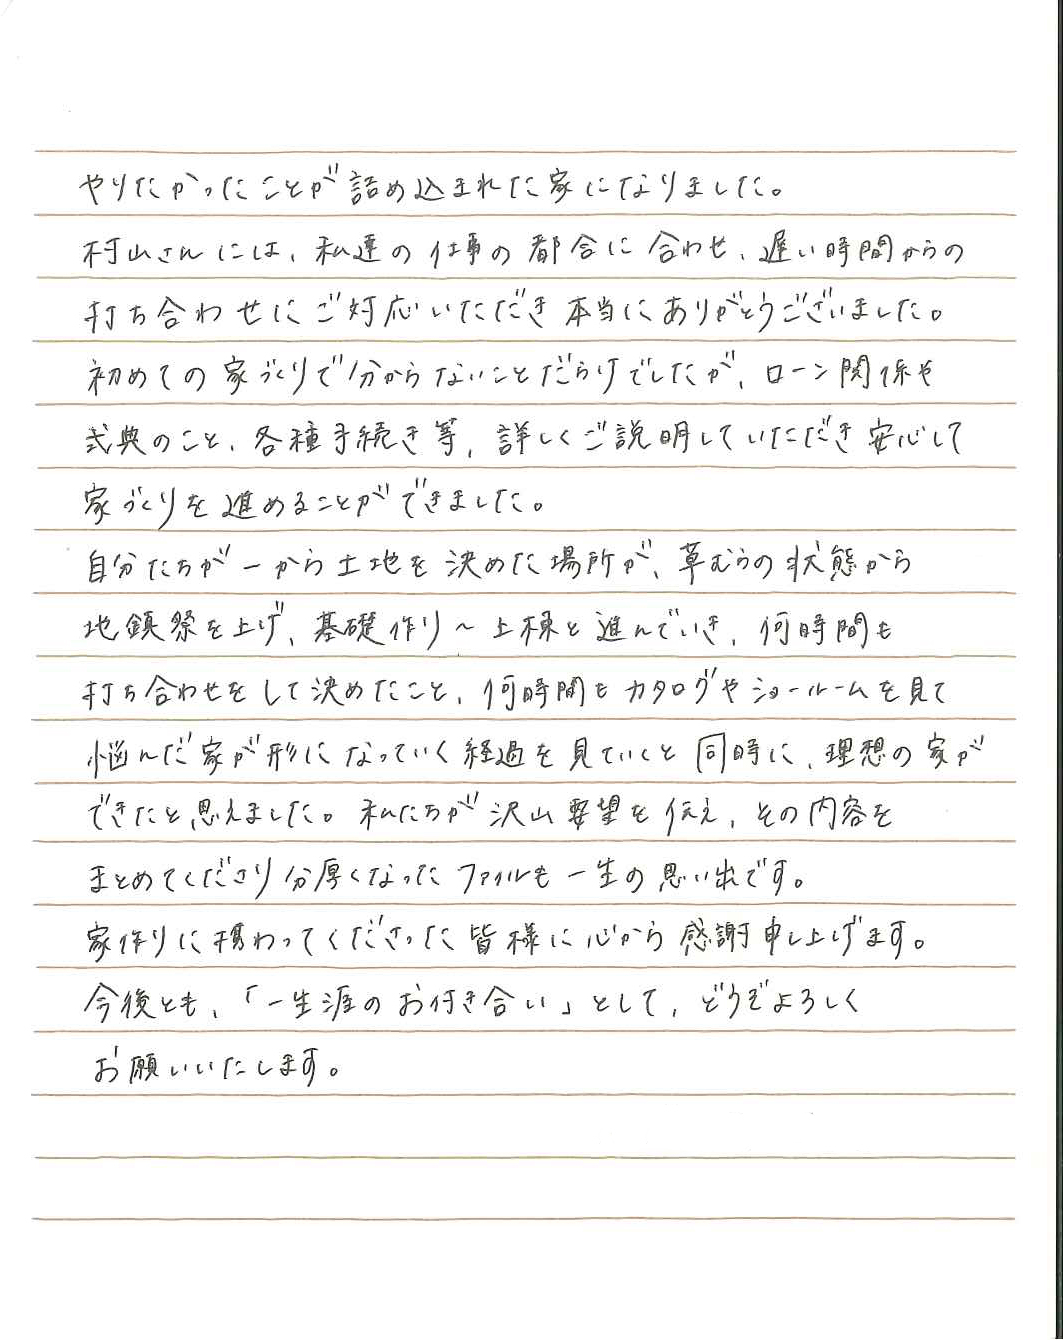 やりたかったことが詰め込まれた家になりました。
村山さんには、私達の仕事の都合に合わせ、遅い時間からの
打ち合わせにご対応いただき本当にありがとうございました。
初めての家づくりで分からないことだらけでしたが、ローン関係や
式典のこと、各種手続き等、詳しくご説明していただき安心して
家づくりを進めることができました。
自分たちが一から土地を決めた場所が、草むらの状態から
地鎮祭を上げ、基礎作り〜上棟と進んでいき、何時間も
打ち合わせをして決めたこと、何時間もカタログやショールームを見て
悩んだ家が形になっていく経過を見ていくと同時に、理想の家が
できたと思えました。私たちが沢山要望を伝え、その内容を
まとめてくださり分厚くなったファイルも一生の思い出です。
家作りに携わってくださった皆様に心から感謝申し上げます。
今後とも、「一生涯のお付き合い」として、どうぞよろしく
お願いいたします。